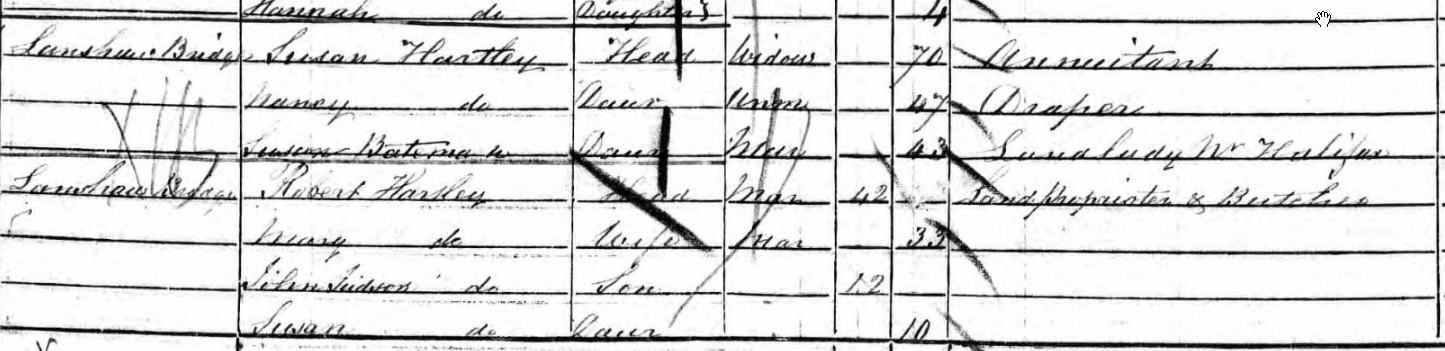 Hannah do Daughter 4
Lanshaw Bridge Susan Hartley Head Widow 70 Annuitant
Nancy do Daur Unm 47 Draper
Susan Bateman Daur Mar 43 Landlady Nr Halifax
Lanshaw Bridge Robert Hartley Head Mar 42 Land proprietor & Butcher
Mary do Wife Mar 33
John Judson do Son 12
Susan do Daur 10